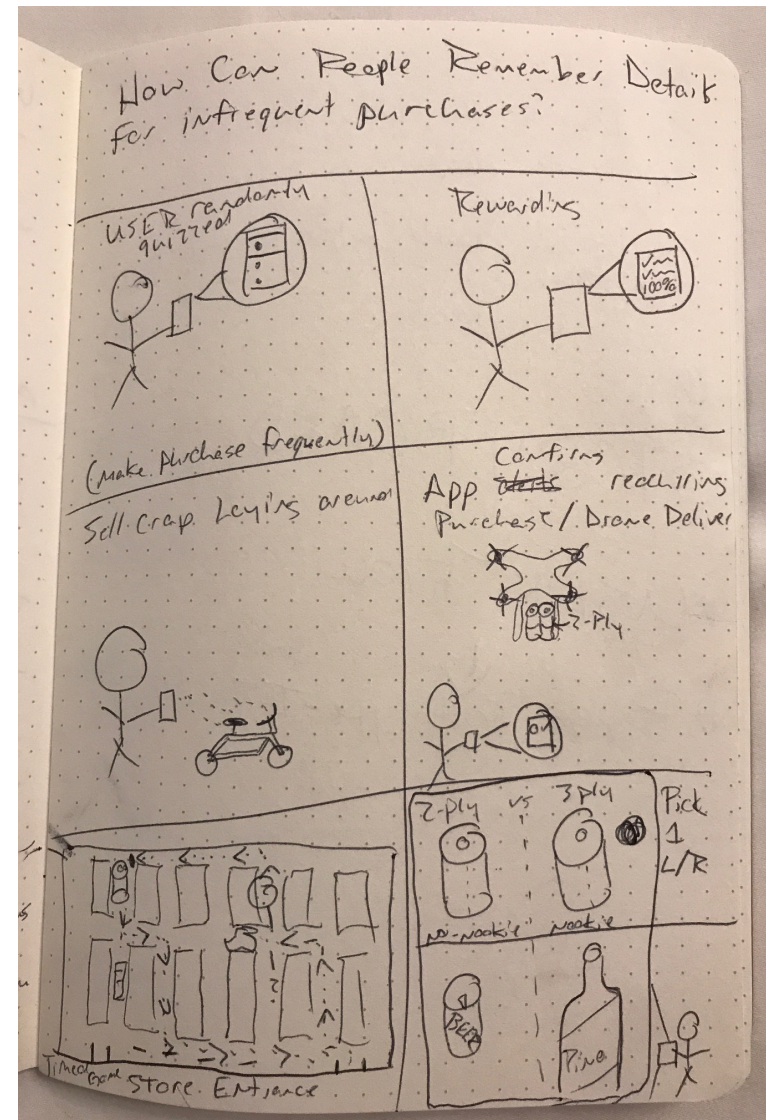 How Can People Remember Details
for infrequent purchases?
USER randomly
quizzed
Rewarding
100%
(make purchase frequently)
Sell Crap Laying around
Confirms
App alerts reacurring
Purchase / Drone Deliver
2-Ply
2-ply vs 3 ply
Pick
1
L/R
no-nookie nookie
BEER
Pino
Timed Game
Store Entrance